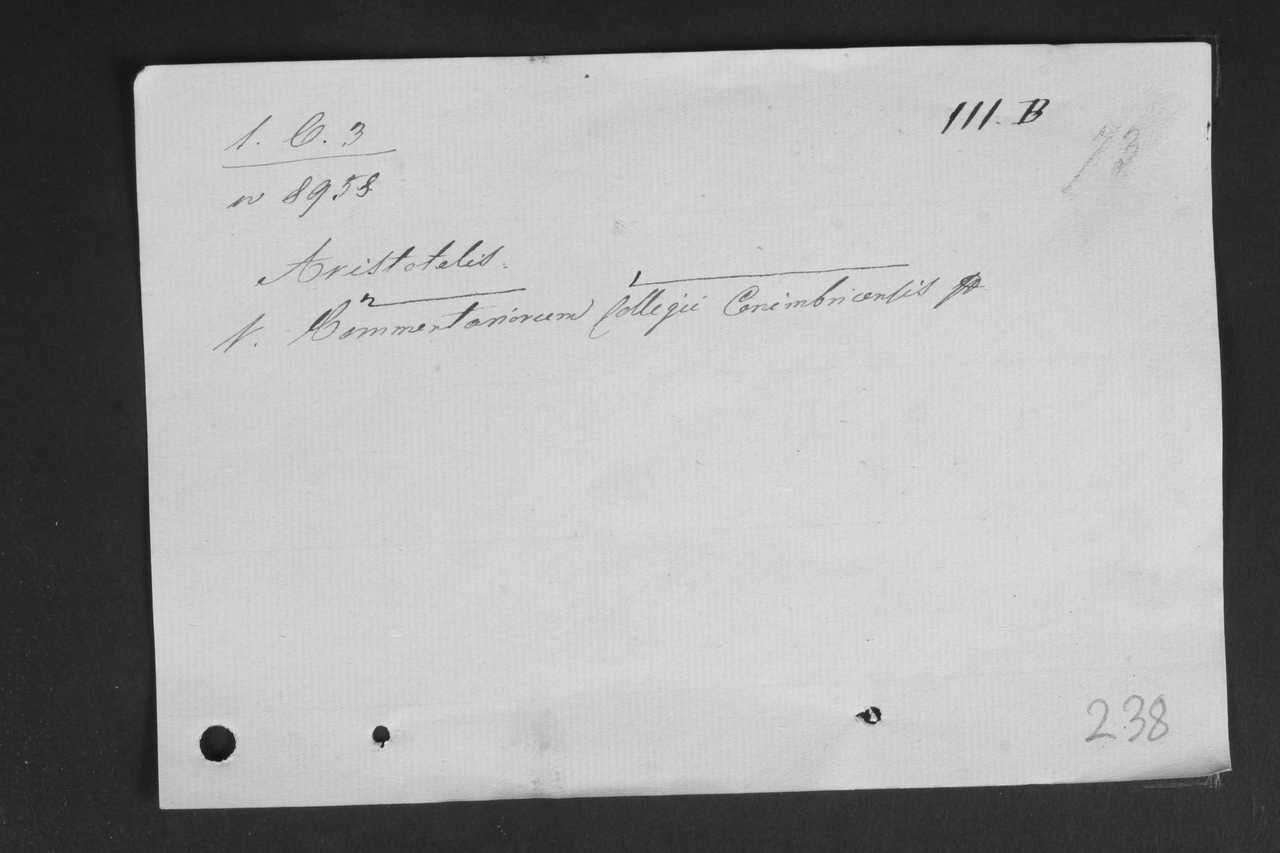 1. C. 3
III. B
73
n 8958
Aristotelis.
2 1
V. Commentariorum Collegii Conimbricensis
238